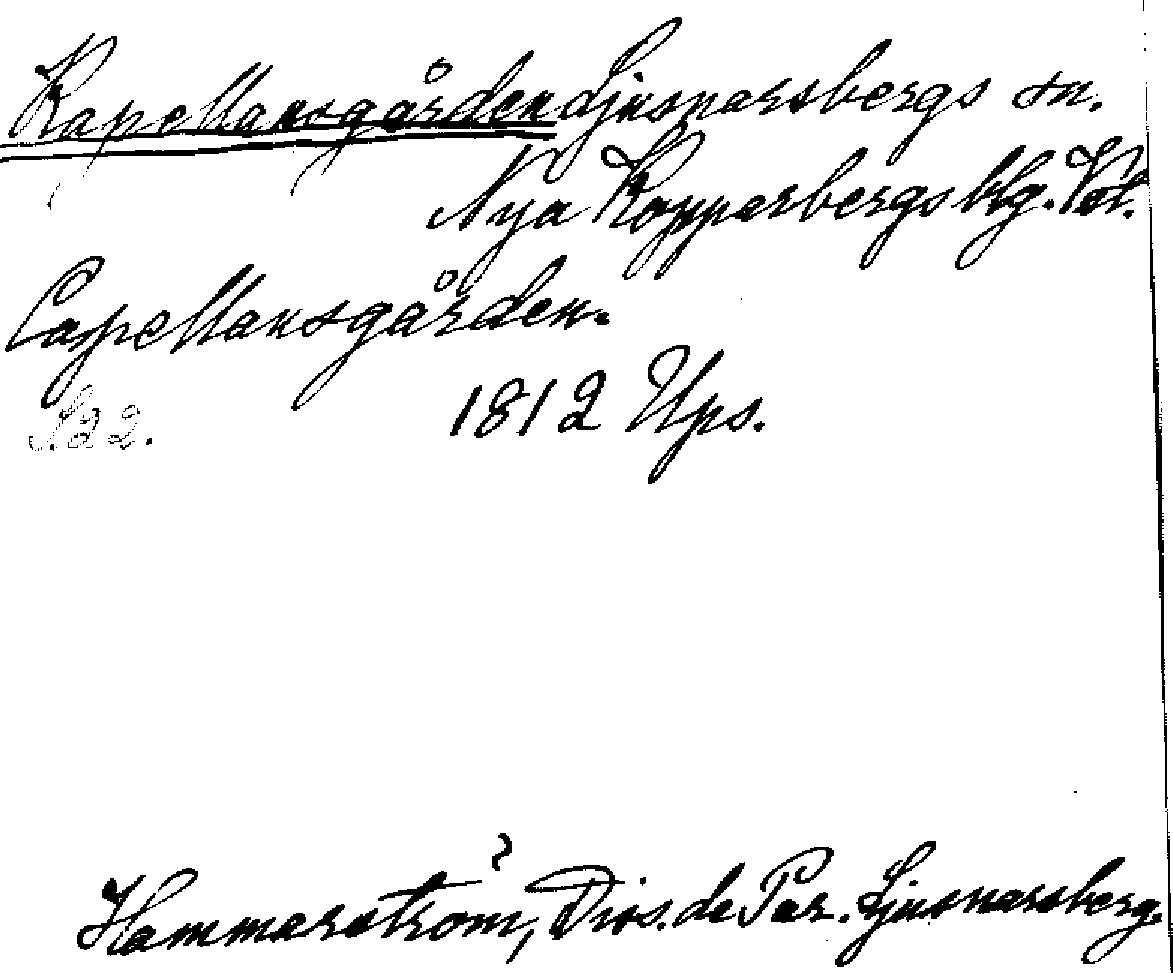 Kapellansgården Ljusnarsbergs sn.
Nya Kopparbergs blg. Vstm.
Capellansgården.
S. 22. 1812 Ups.
Hammarström, Diss. de Par. Ljusnarsberg.